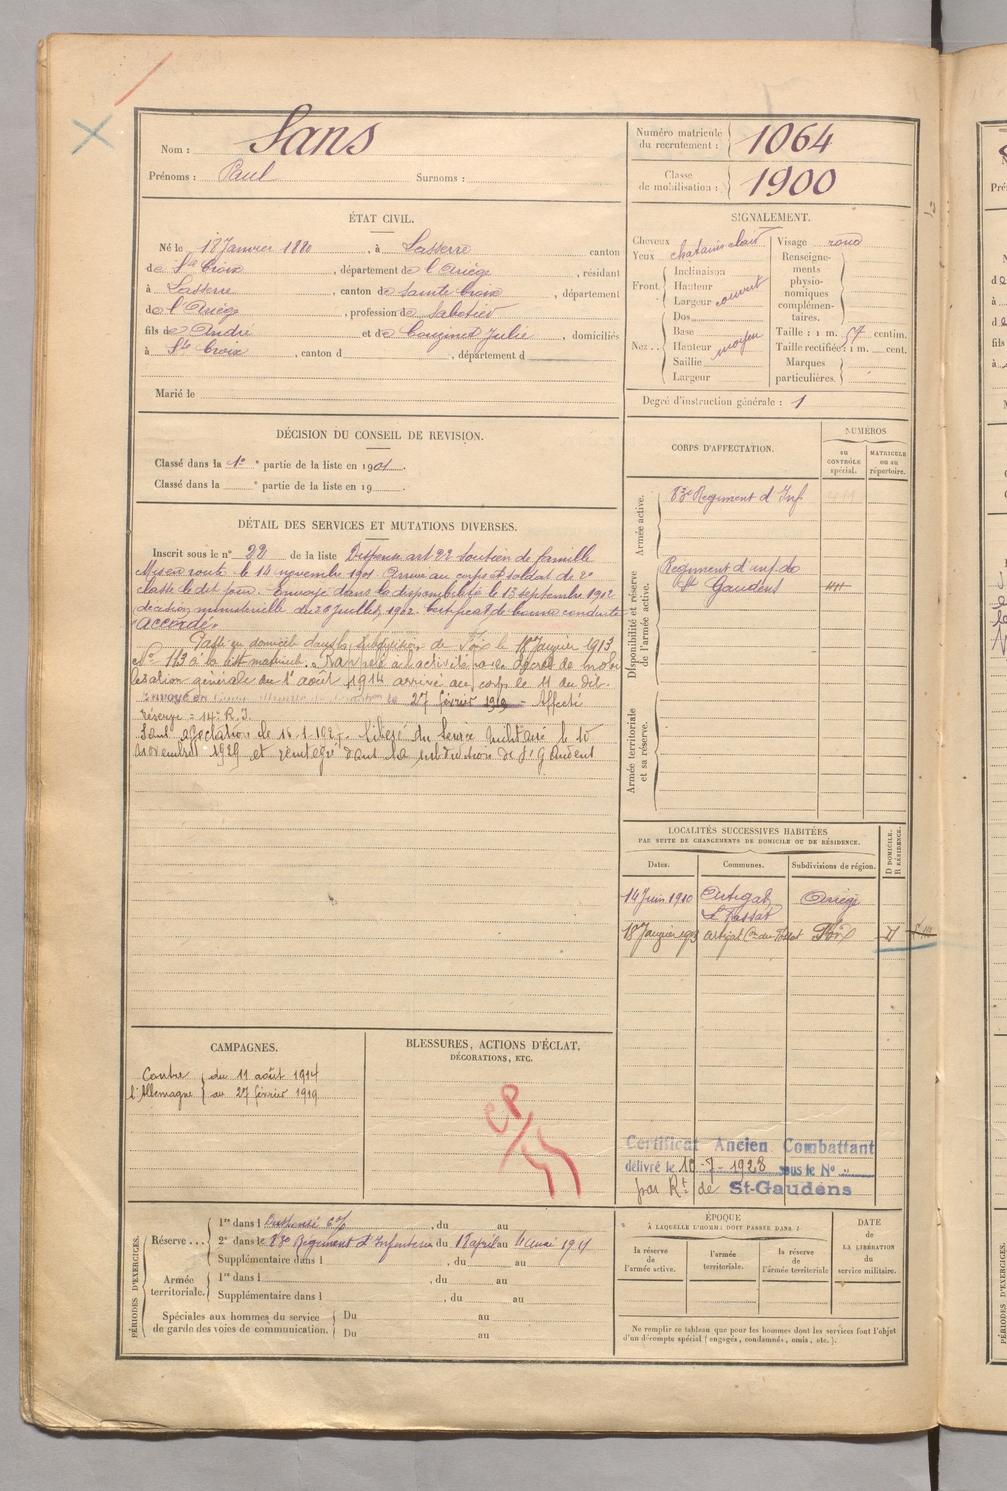 Nom : Sans
Prénoms : Paul Surnoms :
Numéro matricule du recrutement : 1064
Classe de mobilisation : 1900
ÉTAT CIVIL.
Né le 17 Janvier 1880, à Lasserre canton
de Ste Croix, département de l'Ariège, résidant
à Lasserre, canton de Sainte Croix, département
de l'Ariège, profession de Sabotier
fils de André et de Couzinet Julie, domiciliés
à Ste Croix, canton d , département d
Marié le
SIGNALEMENT.
Cheveux chatains clair
Yeux
Front. Inclinaison
Hauteur
Largeur couvert
Nez .. Dos
Base
Hauteur moyen
Saillie
Largeur
Visage rond
Renseignements physionomiques complémentaires.
Taille : 1 m. 57 centim.
Taille rectifiée : 1 m. cent.
Marques particulières.
Degré d'instruction générale : 1
DÉCISION DU CONSEIL DE REVISION.
Classé dans la 1e partie de la liste en 1901.
Classé dans la e partie de la liste en 19 .
DÉTAIL DES SERVICES ET MUTATIONS DIVERSES.
Inscrit sous le n° 22 de la liste Dispensé art 22 Soutien de famille
Mis en route le 14 novembre 1901 Arrivé au corps et soldat de 2e
classe le dit jour. Envoyé dans la disponibilité le 13 septembre 1902
décision ministérielle du Juillet 1902. Certificat de bonne conduite
"accordé"
Passé en domicile dans la subdivision de Foix le 18 Janvier 1913
N° 113 à la list matricule. Rappelé à l'activité par le décret de mobi
lisation générale du 1er août 1914 arrivé au corps le 11 du dit.
Envoyé en congé le 27 février 1919 - Affecté
Réserve : 14e R. I.
Sans affectation de 1927. Libéré du service militaire le 10
novembre 1929 et réintégré dans la subdivision de St Gaudens
CORPS D'AFFECTATION.
NUMÉROS
au CONTRÔLE spécial.
MATRICULE ou au répertoire.
Armée active.
83e Regiment d'Inf
Disponibilité et réserve de l'armée active.
Regiment d'inf. de
St Gaudens
Armée territoriale et sa réserve.
LOCALITÉS SUCCESSIVES HABITÉES
PAR SUITE DE CHANGEMENTS DE DOMICILE OU DE RÉSIDENCE.
Dates. Communes. Subdivisions de région. D DOMICILE. R RÉSIDENCE.
14 Juin 1910 Artigat Ariège
Le Fossat
18 Janvier 1913 Artigat Con du Fossat Foix D
CAMPAGNES.
Contre l'Allemagne du 11 août 1914
au 27 février 1919
BLESSURES, ACTIONS D'ÉCLAT,
DÉCORATIONS, ETC.
Certificat Ancien Combattant
délivré le 10-7-1928 sous le N° "
par Rt de St-Gaudens
PÉRIODES D'EXERCICES.
Réserve ... 1re dans l , du au
2e dans le 83e Régiment d'Infanterie du 18 april au 4 mai 1911
Supplémentaire dans l , du au
Armée territoriale. 1re dans l , du au
Supplémentaire dans l , du au
Spéciales aux hommes du service de garde des voies de communication. Du au
Du au
ÉPOQUE
À LAQUELLE L'HOMME DOIT PASSER DANS :
la réserve de l'armée active.
l'armée territoriale.
la réserve de l'armée territoriale
DATE de LA LIBÉRATION du service militaire.
Ne remplir ce tableau que pour les hommes dont les services font l'objet
d'un décompte spécial (engagés, condamnés, omis, etc.).